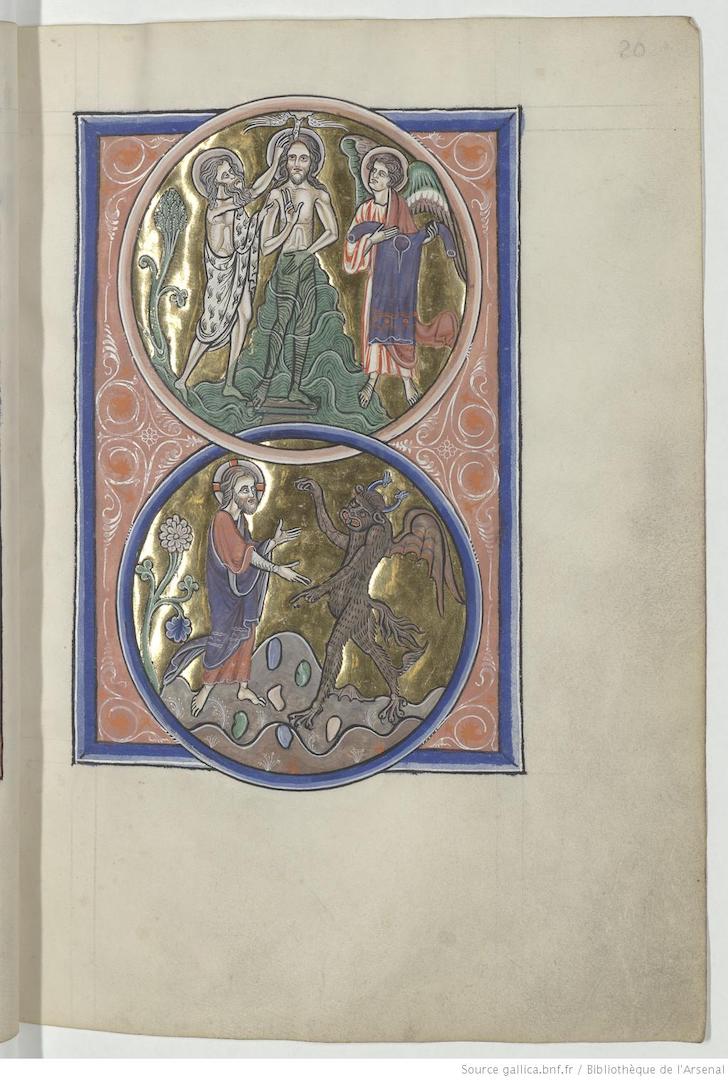 20
Source gallica.bnf.fr / Bibliothèque de l'Arsenal